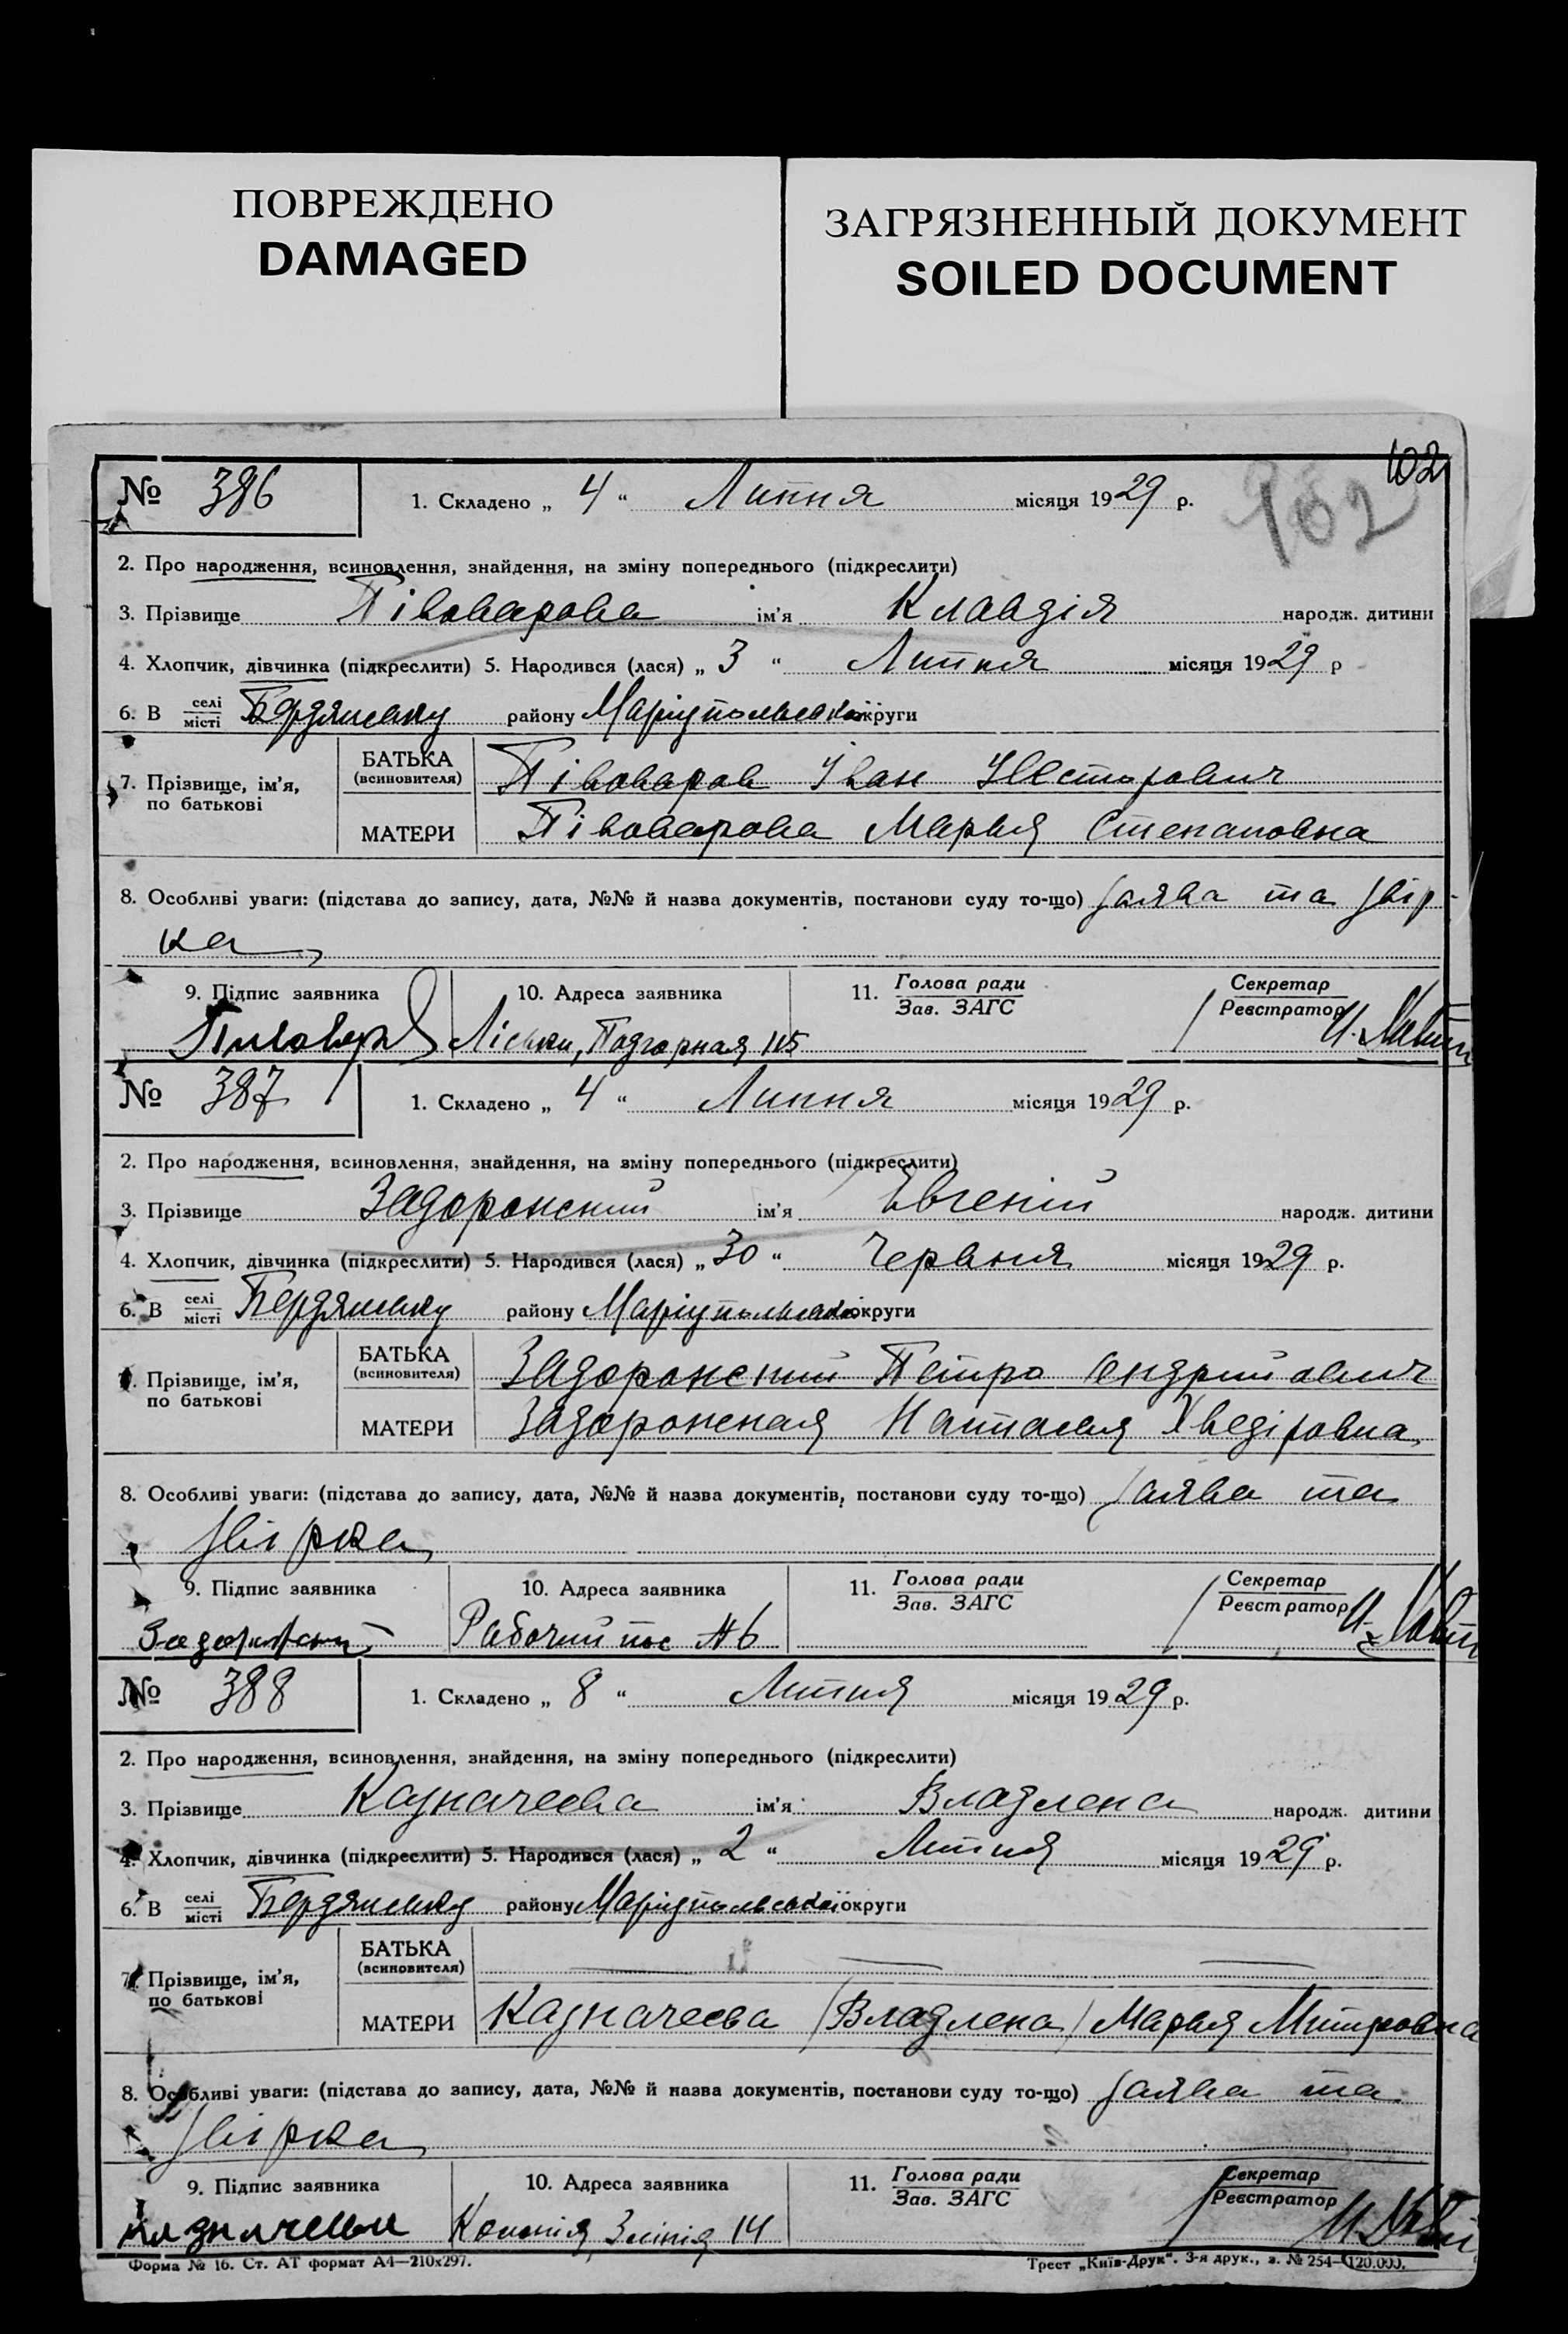 ПОВРЕЖДЕНО
DAMAGED
ЗАГРЯЗНЕННЫЙ ДОКУМЕНТ
SOILED DOCUMENT
102
162
№ 386
1. Складено „ 4 “ Липня місяця 1929 р.
2. Про народження, всиновлення, знайдення, на зміну попереднього (підкреслити)
3. Прізвище Півоварова ім'я Клавдія народж. дитини
4. Хлопчик, дівчинка (підкреслити) 5. Народився (лася) „ 3 “ Липня місяця 1929 р
6. В селі місті Бердянську району Маріупольської округи
7. Прізвище, ім'я, по батькові
БАТЬКА (всиновителя) Півоваров Іван Нестерович
МАТЕРИ Півоварова Марья Степановна
8. Особливі уваги: (підстава до запису, дата, №№ й назва документів, постанови суду то-що) заява та звір-
ка
9. Підпис заявника 10. Адреса заявника 11. Голова ради Зав. ЗАГС Секретар Реєстратор
Ліски, Подгорная 115
№ 387
1. Складено „ 4 “ Липня місяця 1929 р.
2. Про народження, всиновлення, знайдення, на зміну попереднього (підкреслити)
3. Прізвище Задорожский ім'я Евгеній народж. дитини
4. Хлопчик, дівчинка (підкреслити) 5. Народився (лася) „ 30 “ Червня місяця 1929 р.
6. В селі місті Бердянську району Маріупольської округи
7. Прізвище, ім'я, по батькові
БАТЬКА (всиновителя) Задорожский Петро Андрийович
МАТЕРИ Задорожская Наталья Хведіровна
8. Особливі уваги: (підстава до запису, дата, №№ й назва документів, постанови суду то-що) заява та
звірка
9. Підпис заявника 10. Адреса заявника 11. Голова ради Зав. ЗАГС Секретар Реєстратор
Рабочий пос № 6
№ 388
1. Складено „ 8 “ Липня місяця 1929 р.
2. Про народження, всиновлення, знайдення, на зміну попереднього (підкреслити)
3. Прізвище Казначеева ім'я Владлена народж. дитини
4. Хлопчик, дівчинка (підкреслити) 5. Народився (лася) „ 2 “ Липня місяця 1929 р.
6. В селі місті Бердянську району Маріупольської округи
7. Прізвище, ім'я, по батькові
БАТЬКА (всиновителя) — — —
МАТЕРИ Казначеева (Владлена) Марья Митровна
8. Особливі уваги: (підстава до запису, дата, №№ й назва документів, постанови суду то-що) заява та
звірка
9. Підпис заявника 10. Адреса заявника 11. Голова ради Зав. ЗАГС Секретар Реєстратор
Казначеева Колонія, 3 лінія 14
Форма № 16. Ст. АТ формат А4—210х297.
Трест „Київ-Друк“. 3-я друк., з. № 254—120.000.